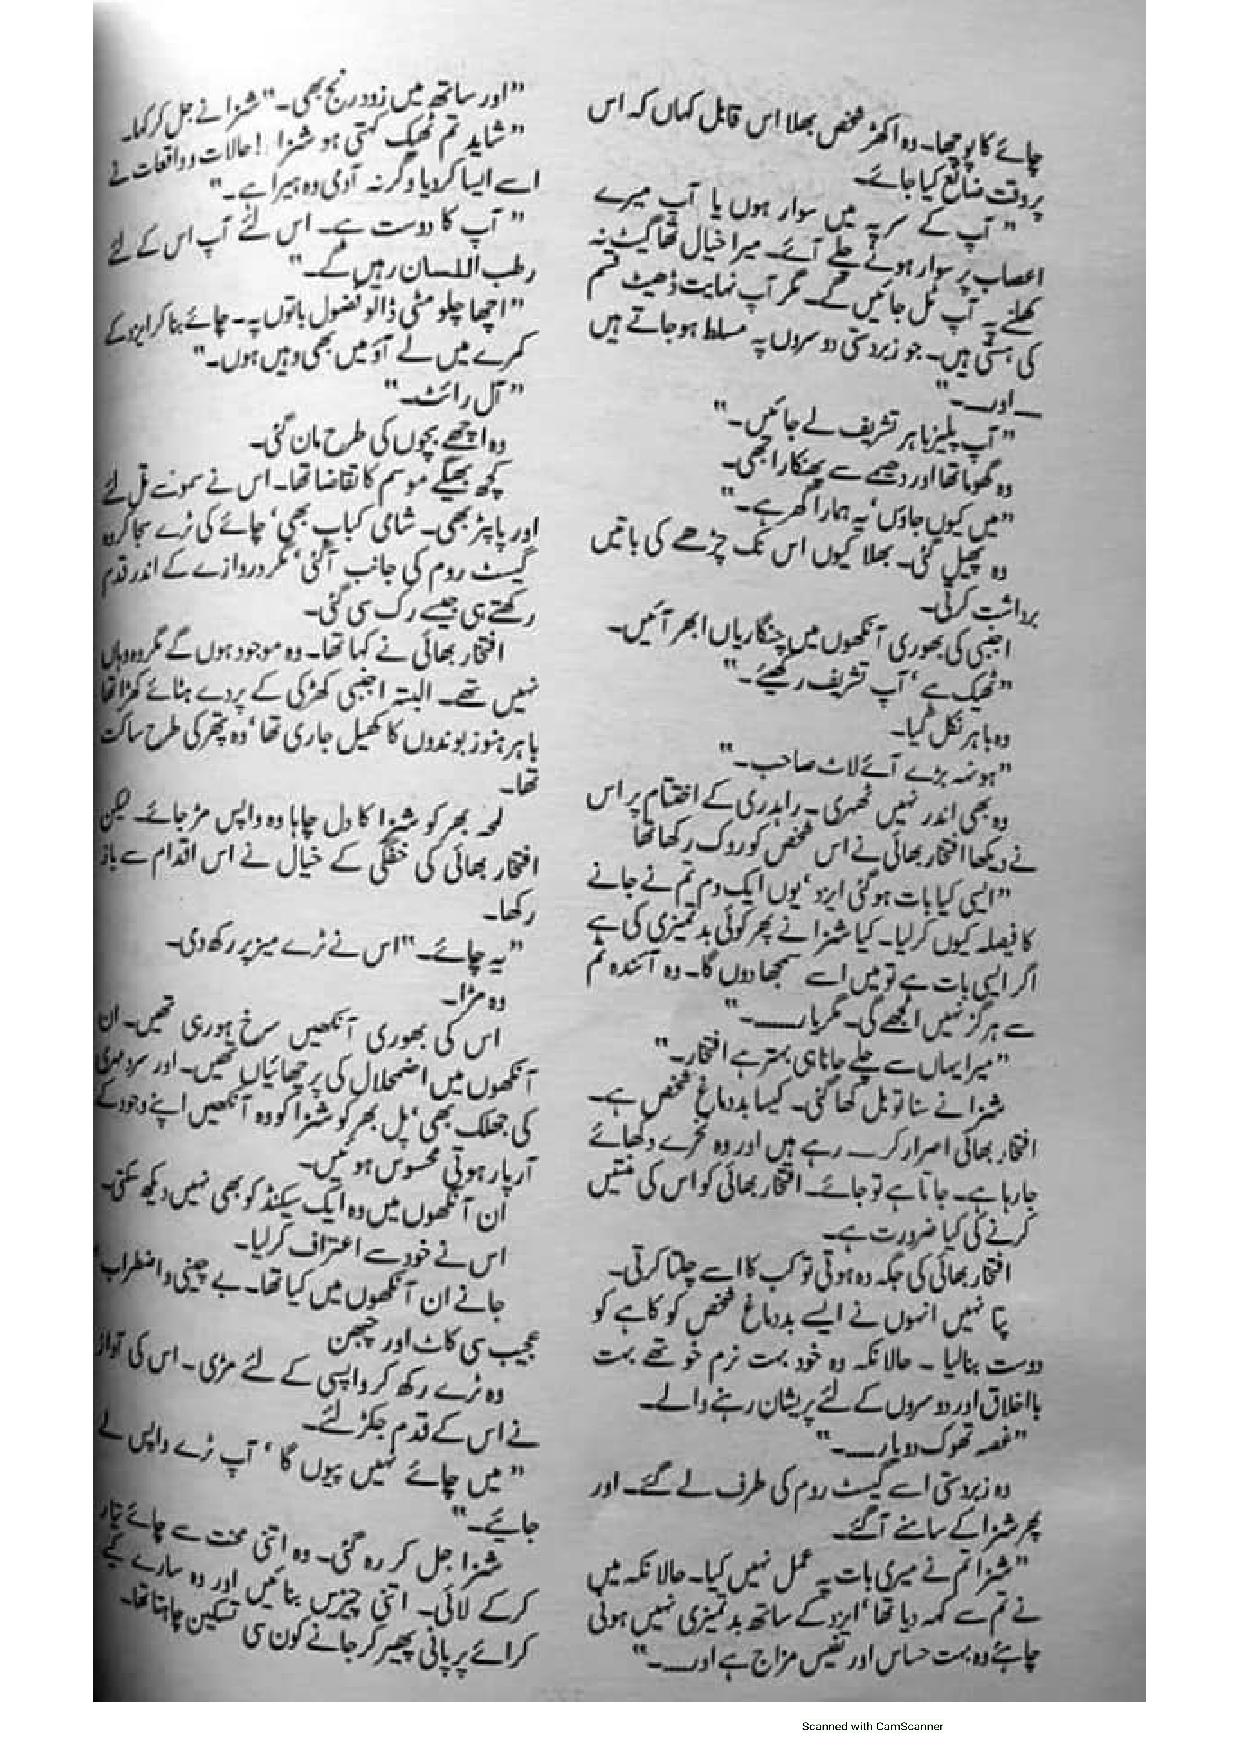 چائے کا پوچھا۔ وہ اکھڑ شخص بھلا اس قابل کہاں کہ اس
پر وقت ضائع کیا جائے۔
"آپ کے سر پہ میں سوار ہوں یا آپ میرے
اعصاب پر سوار ہونے چلے آئے۔ میرا خیال تھا گیٹ نہ
کھلنے پہ آپ ٹل جائیں گے۔ مگر آپ نہایت ڈھیٹ قسم
کی ہستی ہیں۔ جو زبردستی دوسروں پہ مسلط ہو جاتے ہیں
۔ اور۔۔"
"آپ پلیز باہر تشریف لے جائیں۔"
وہ گھوما تھا اور دھیمے سے پھنکارا تھا۔
"میں کیوں جاؤں‘ یہ ہمارا گھر ہے۔"
وہ پھیل گئی۔ بھلا کیوں اس تک چڑھے کی باتیں
برداشت کرتی۔
اجنبی کی بھوری آنکھوں میں چنگاریاں ابھر آئیں۔
"ٹھیک ہے‘ آپ تشریف رکھیئے۔"
وہ باہر نکل گیا۔
"ہونہہ بڑے آئے لاٹ صاحب۔"
وہ بھی اندر نہیں ٹھہری۔ راہداری کے اختتام پر اس
نے دیکھا افتخار بھائی نے اس شخص کو روک رکھا تھا
"ایسی کیا بات ہو گئی ایزد‘ یوں ایک دم تم نے جانے
کا فیصلہ کیوں کر لیا۔ کیا شزا نے پھر کوئی بدتمیزی کی ہے
اگر ایسی بات ہے تو میں اسے سمجھا دوں گا۔ وہ آئندہ تم
سے ہرگز نہیں الجھے گی۔ مگر یار۔۔"
"میرا یہاں سے چلے جانا ہی بہتر ہے افتخار۔"
شزا نے سنا تو بل کھا گئی۔ کیسا بد دماغ شخص ہے۔
افتخار بھائی اصرار کر رہے ہیں اور وہ نخرے دکھائے
جا رہا ہے۔ جاتا ہے تو جائے۔ افتخار بھائی کو اس کی منتیں
کرنے کی کیا ضرورت ہے۔
افتخار بھائی کی جگہ وہ ہوتی تو کب کا اسے چلتا کرتی۔
پتا نہیں انہوں نے ایسے بد دماغ شخص کو کاہے کو
دوست بنا لیا۔ حالانکہ وہ خود بہت نرم خو تھے بہت
بااخلاق اور دوسروں کے لئے پریشان رہنے والے۔
"غصہ تھوک دو یار۔۔"
وہ زبردستی اسے گیسٹ روم کی طرف لے گئے۔ اور
پھر شزا کے سامنے آگئے۔
"شزا تم نے میری بات پہ عمل نہیں کیا۔ حالانکہ میں
نے تم سے کہہ دیا تھا‘ ایزد کے ساتھ بدتمیزی نہیں ہونی
چاہئے وہ بہت حساس اور نفیس مزاج ہے اور۔۔"
"اور ساتھ میں زود رنج بھی۔" شزا نے جل کر کہا۔
"شاید تم ٹھیک کہتی ہو شزا! حالات و واقعات نے
اسے ایسا کر دیا وگرنہ آدمی وہ ہیرا ہے۔"
"آپ کا دوست ہے۔ اس لئے آپ اس کے لئے
رطب اللسان رہیں گے۔"
"اچھا چلو مٹی ڈالو فضول باتوں پہ۔ چائے بنا کر ایزد کے
کمرے میں لے آؤ میں بھی وہیں ہوں۔"
"آل رائٹ۔"
وہ اچھے بچوں کی طرح مان گئی۔
کچھ بھیگے موسم کا تقاضا تھا۔ اس نے سموسے تل لئے
اور پاپڑ بھی۔ شامی کباب بھی‘ چائے کی ٹرے سجا کر وہ
گیسٹ روم کی جانب آگئی‘ مگر دروازے کے اندر قدم
رکھتے ہی جیسے رک سی گئی۔
افتخار بھائی نے کہا تھا۔ وہ موجود ہوں گے مگر وہ وہاں
نہیں تھے۔ البتہ اجنبی کھڑکی کے پردے ہٹائے کھڑا تھا
باہر ہنوز بوندوں کا کھیل جاری تھا‘ وہ پتھر کی طرح ساکت
تھا۔
لمحہ بھر کو شزا کا دل چاہا وہ واپس مڑ جائے۔ لیکن
افتخار بھائی کی خفگی کے خیال نے اس اقدام سے باز
رکھا۔
"یہ چائے۔" اس نے ٹرے میز پر رکھ دی۔
وہ مڑا۔
اس کی بھوری آنکھیں سرخ ہو رہی تھیں۔ ان
آنکھوں میں اضمحلال کی پرچھائیاں تھیں۔ اور سرد مہری
کی جھلک بھی‘ پل بھر کو شزا کو وہ آنکھیں اپنے وجود کے
آر پار ہوتی محسوس ہوئیں۔
ان آنکھوں میں وہ ایک سیکنڈ کو بھی نہیں دیکھ سکتی۔
اس نے خود سے اعتراف کر لیا۔
جانے ان آنکھوں میں کیا تھا۔ بے چینی و اضطراب‘
عجیب سی کاٹ اور چبھن
وہ ٹرے رکھ کر واپسی کے لئے مڑی۔ اس کی آواز
نے اس کے قدم جکڑ لئے۔
"میں چائے نہیں پیوں گا‘ آپ ٹرے واپس لے
جایئے۔"
شزا جل کر رہ گئی۔ وہ اتنی محنت سے چائے تیار
کر کے لائی۔ اتنی چیزیں بنائیں اور وہ سارے کیے
کرائے پر پانی پھیر کر جانے کون سی تسکین چاہتا تھا۔
Scanned with CamScanner